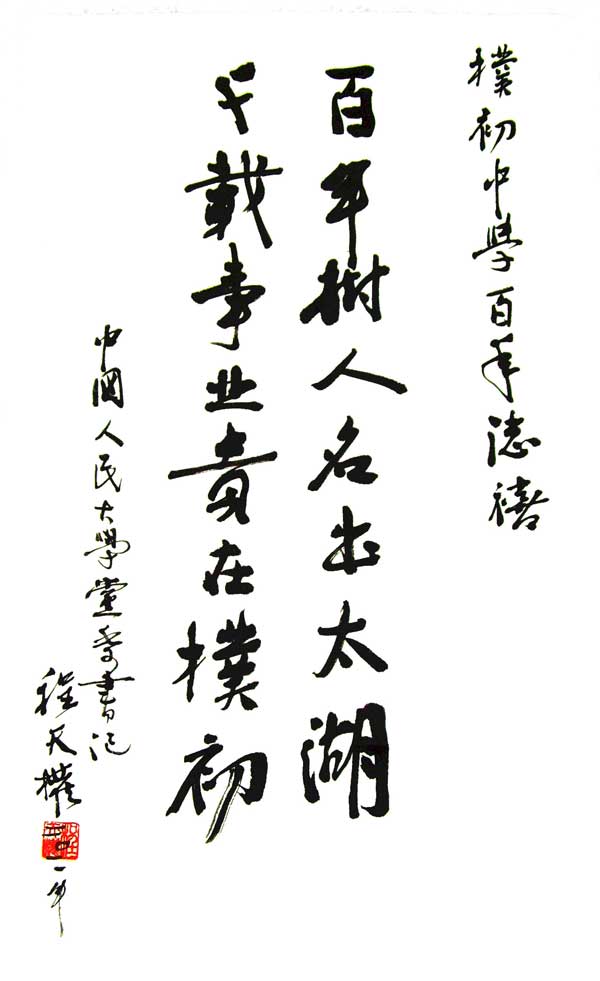 樸初中學百年誌禧
百年樹人名出太湖
千載事业貴在樸初
中國人民大學黨委書记
程天權
二〇一一年